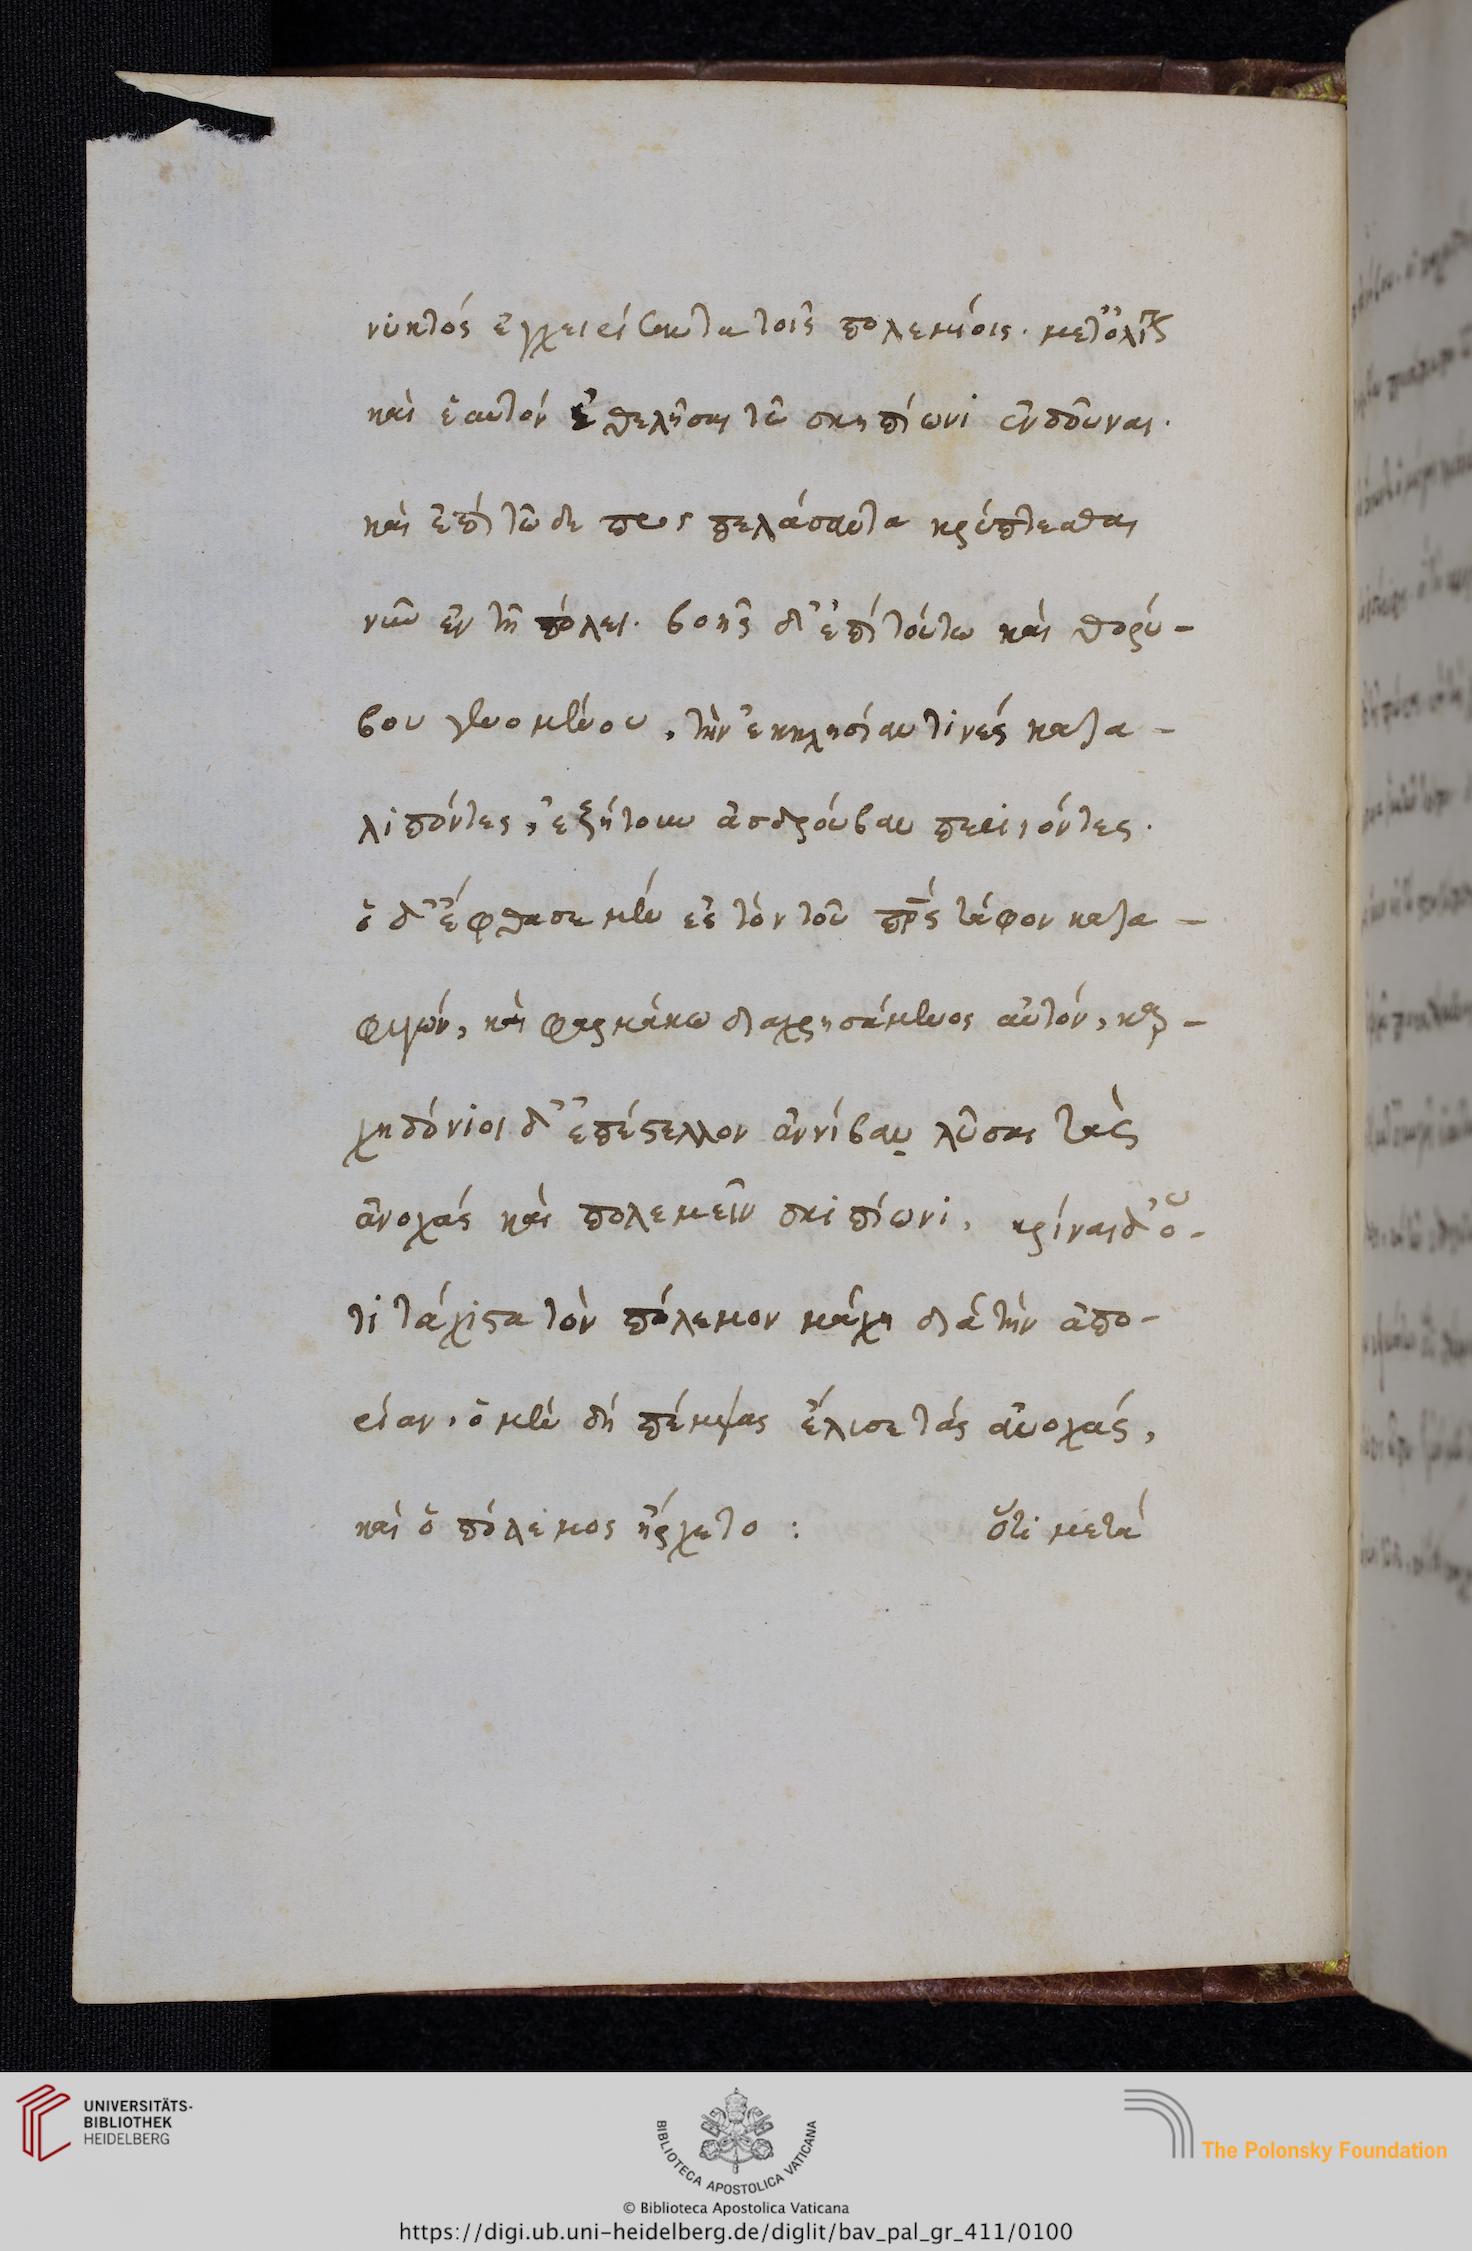 νυκτός ἐγχειρίσαντα τοῖς πολεμίοις. μετ' ὀλί
καὶ ἑαυτόν ἐθελῆσαι τῶ σκηπίωνι ἐνδοῦναι.
καὶ ἐπὶ τῶδε προσπελάσαντα κρύπτεσθαι
νῦν ἐν τῆ πόλει. βοῆς δ' ἐπὶ τούτω καὶ θορύ-
βου γενομένου, τὴν ἐκκλησίαν τινές κατα-
λιπόντες, ἐζήτουν ἀσδρούβαν περιιόντες.
ὁ δ' ἔφθασε μὲν ἐς τὸν τοῦ πρς τάφον κατα-
φυγών, καὶ φαρμάκω διαχρησάμενος αὑτόν, καρ-
χηδόνιοι δ' ἐπέστελλον ἀννίβαν λῦσαι τὰς
ἀνοχάς καὶ πολεμεῖν σκιπίωνι, κρίναι δ' ὅ-
τι τάχιστα τὸν πόλεμον μάχη διὰ τὴν ἀπο-
ρίαν. ὁ μὲν δή πέμψας ἔλυσε τάς ἀνοχάς,
καὶ ὁ πόλεμος ἤρχετο : ὅτι μετά
UNIVERSITÄTS-
BIBLIOTHEK
HEIDELBERG
BIBLIOTECA APOSTOLICA VATICANA
The Polonsky Foundation
© Biblioteca Apostolica Vaticana
https://digi.ub.uni-heidelberg.de/diglit/bav_pal_gr_411/0100